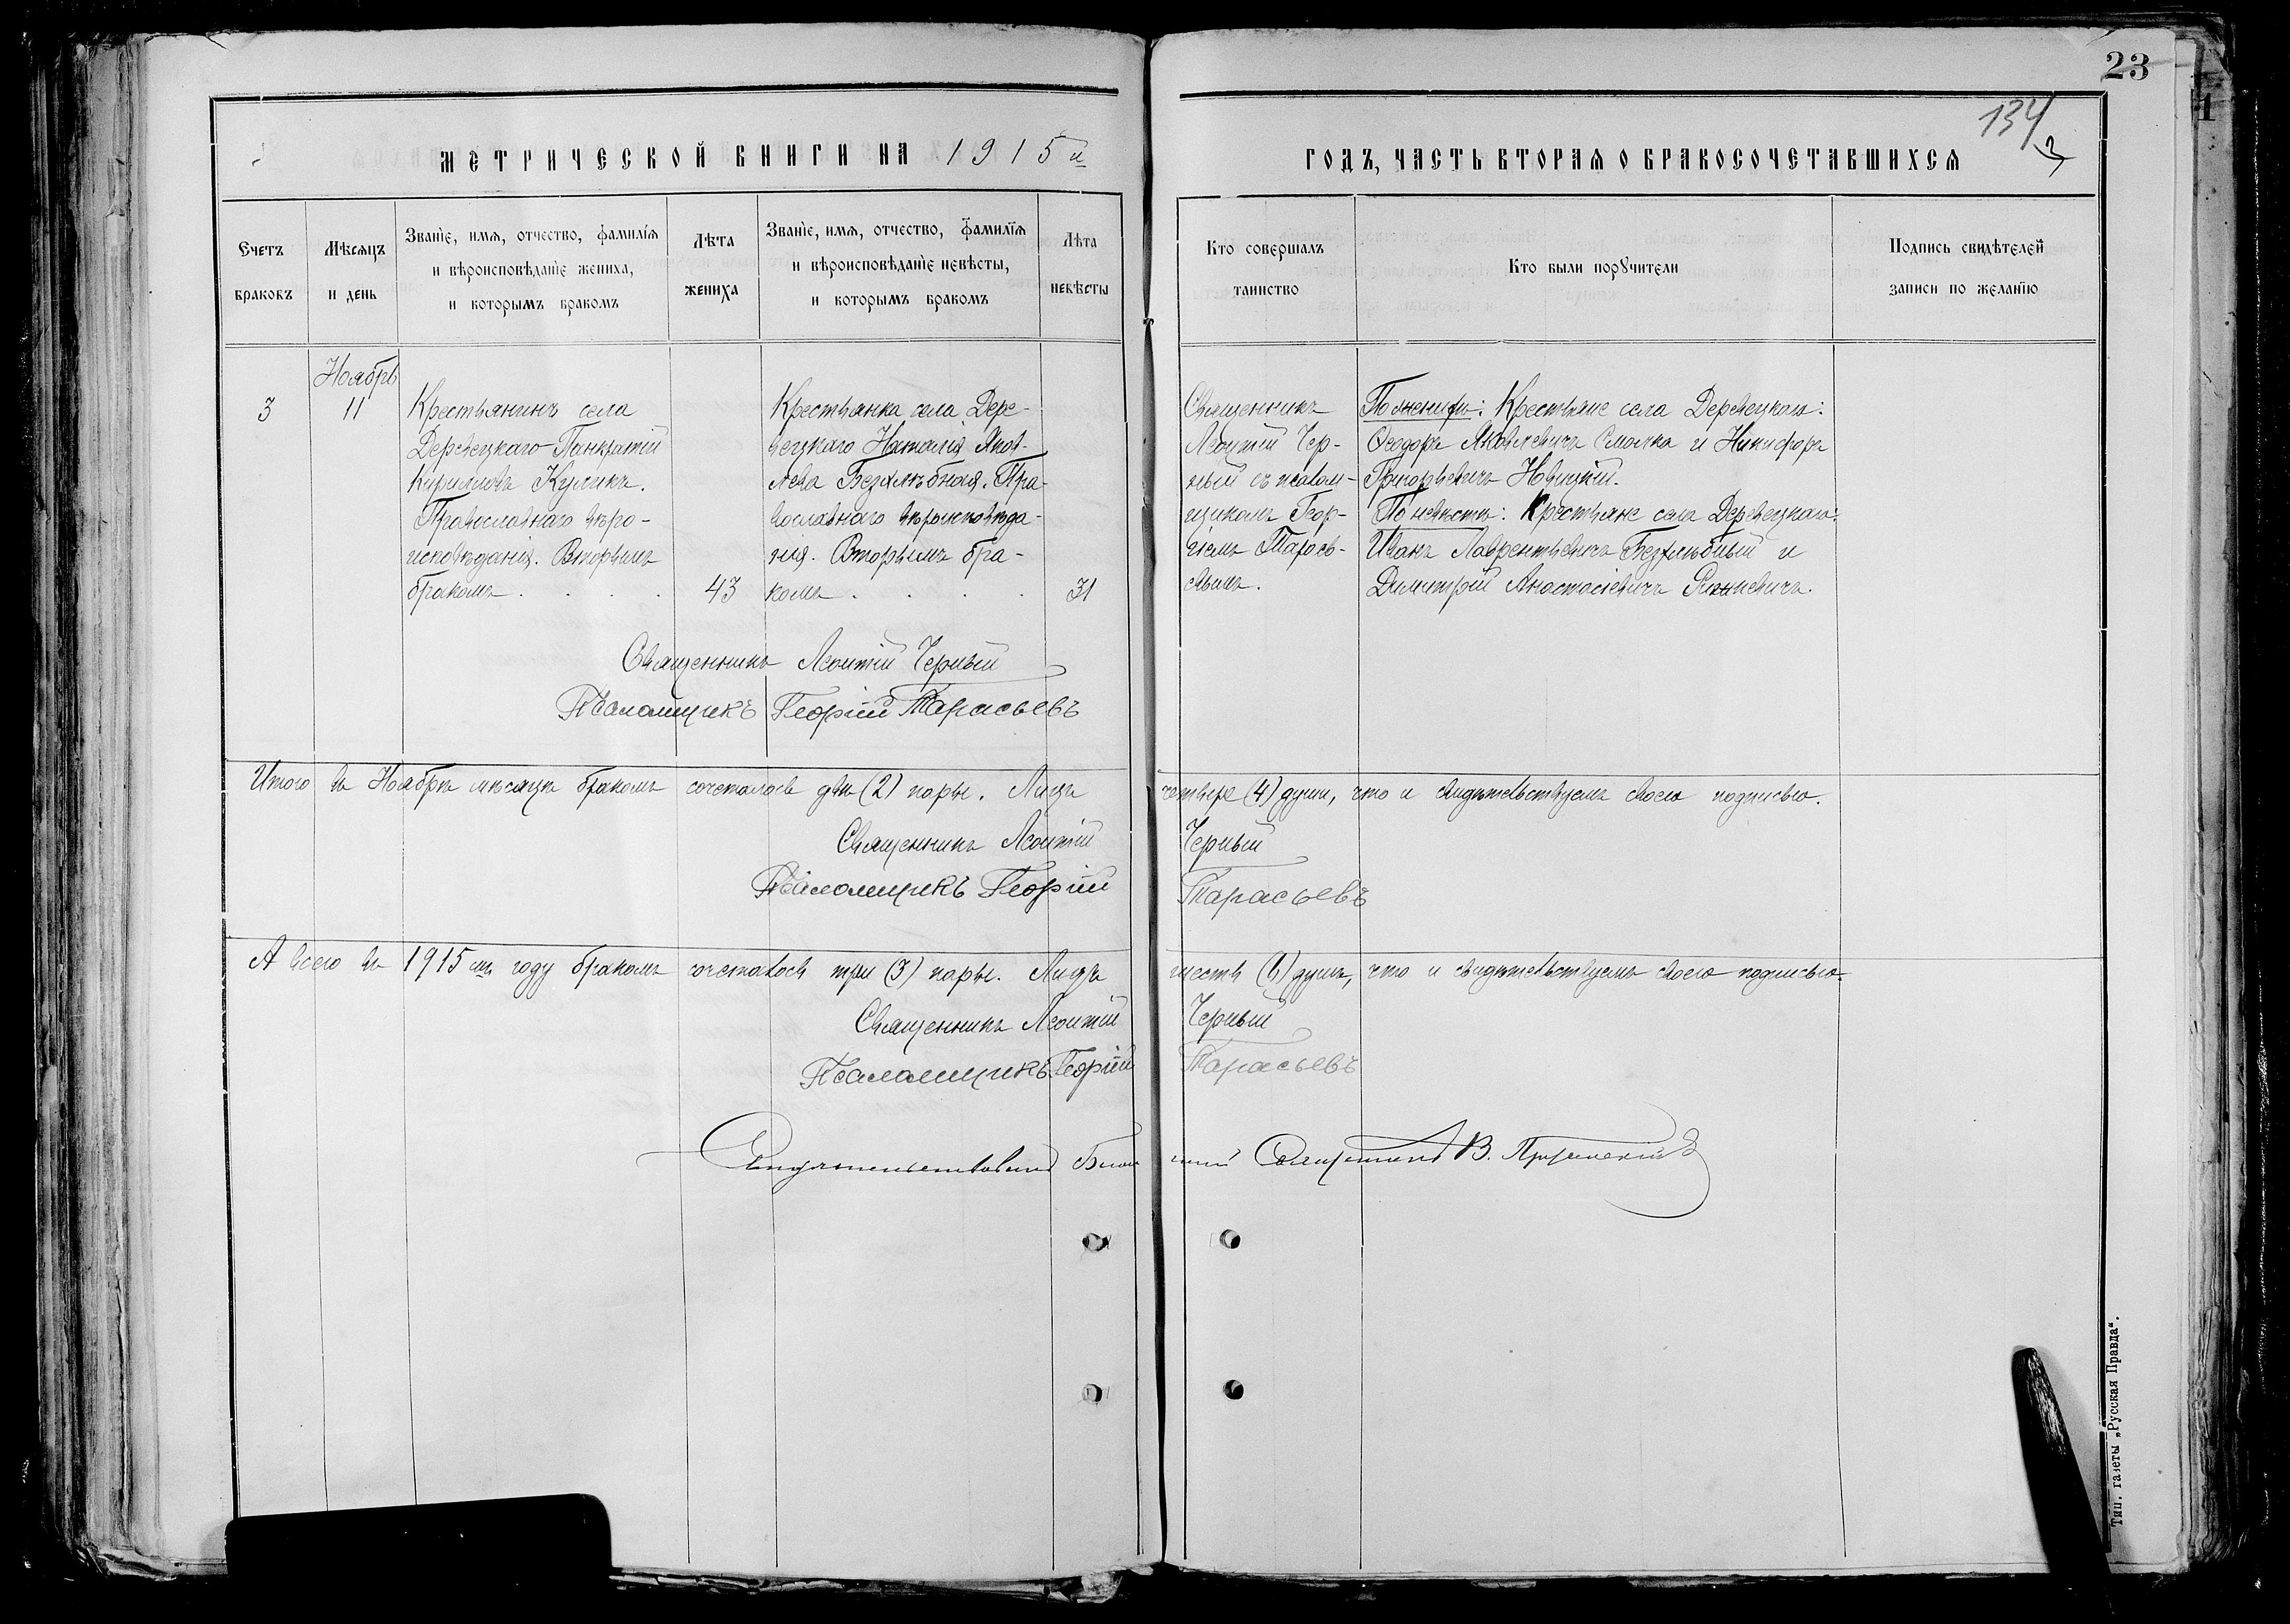 23
134
МЕТРИЧЕСКОЙ КНИГИ НА 1915й
ГОДЪ, ЧАСТЬ ВТОРАЯ О БРАКОСОЧЕТАВШИХСЯ
Счетъ браковъ
Мѣсяцъ и день
Званіе, имя, отчество, фамилія
и вѣроисповѣданіе жениха,
и которымъ бракомъ
Лѣта жениха
Званіе, имя, отчество, фамилія
и вѣроисповѣданіе невѣсты,
и которымъ бракомъ
Лѣта невѣсты
Кто совершалъ
таинство
Кто были поручители
Подпись свидѣтелей
записи по желанію
3
Ноябрь
11
Крестьянинъ села
Деревецкаго Панкратій
Кирилловъ Куликъ.
Православнаго вѣро-
исповѣданія. Вторымъ
бракомъ . . . .
43
Крестьянка села Дере-
вецкаго Наталія Яков-
лева Безхлѣбная. Пра-
вославнаго вѣроисповѣда-
нія. Вторымъ бра-
комъ . . . .
31
Священникъ
Леонтій Чер-
ный съ псалом-
щикомъ Геор-
гіемъ Тарась-
евымъ.
По женихѣ: Крестьяне села Деревецкаго:
Ѳеодоръ Яковлевичъ Смолка и Никифоръ
Григорьевичъ Новицкій.
По невѣстѣ: Крестьяне села Деревецкаго:
Иванъ Лаврентьевичъ Безхлѣбный и
Димитрій Анастасіевичъ
Священникъ Леонтій Черный
Псаломщикъ Георгій Тарасьевъ
Итого въ Ноябрѣ мѣсяцѣ бракомъ сочеталось двѣ (2) пары. Лицъ четыре (4) души, что и свидѣтельствуемъ своею подписью.
Священникъ Леонтій Черный
Псаломщикъ Георгій Тарасьевъ
А всего въ 1915мъ году бракомъ сочеталось три (3) пары. Лицъ шесть (6) душъ, что и свидѣтельствуемъ своею подписью.
Священникъ Леонтій Черный
Псаломщикъ Георгій Тарасьевъ
В.
Тип. газеты „Русская Правда“.